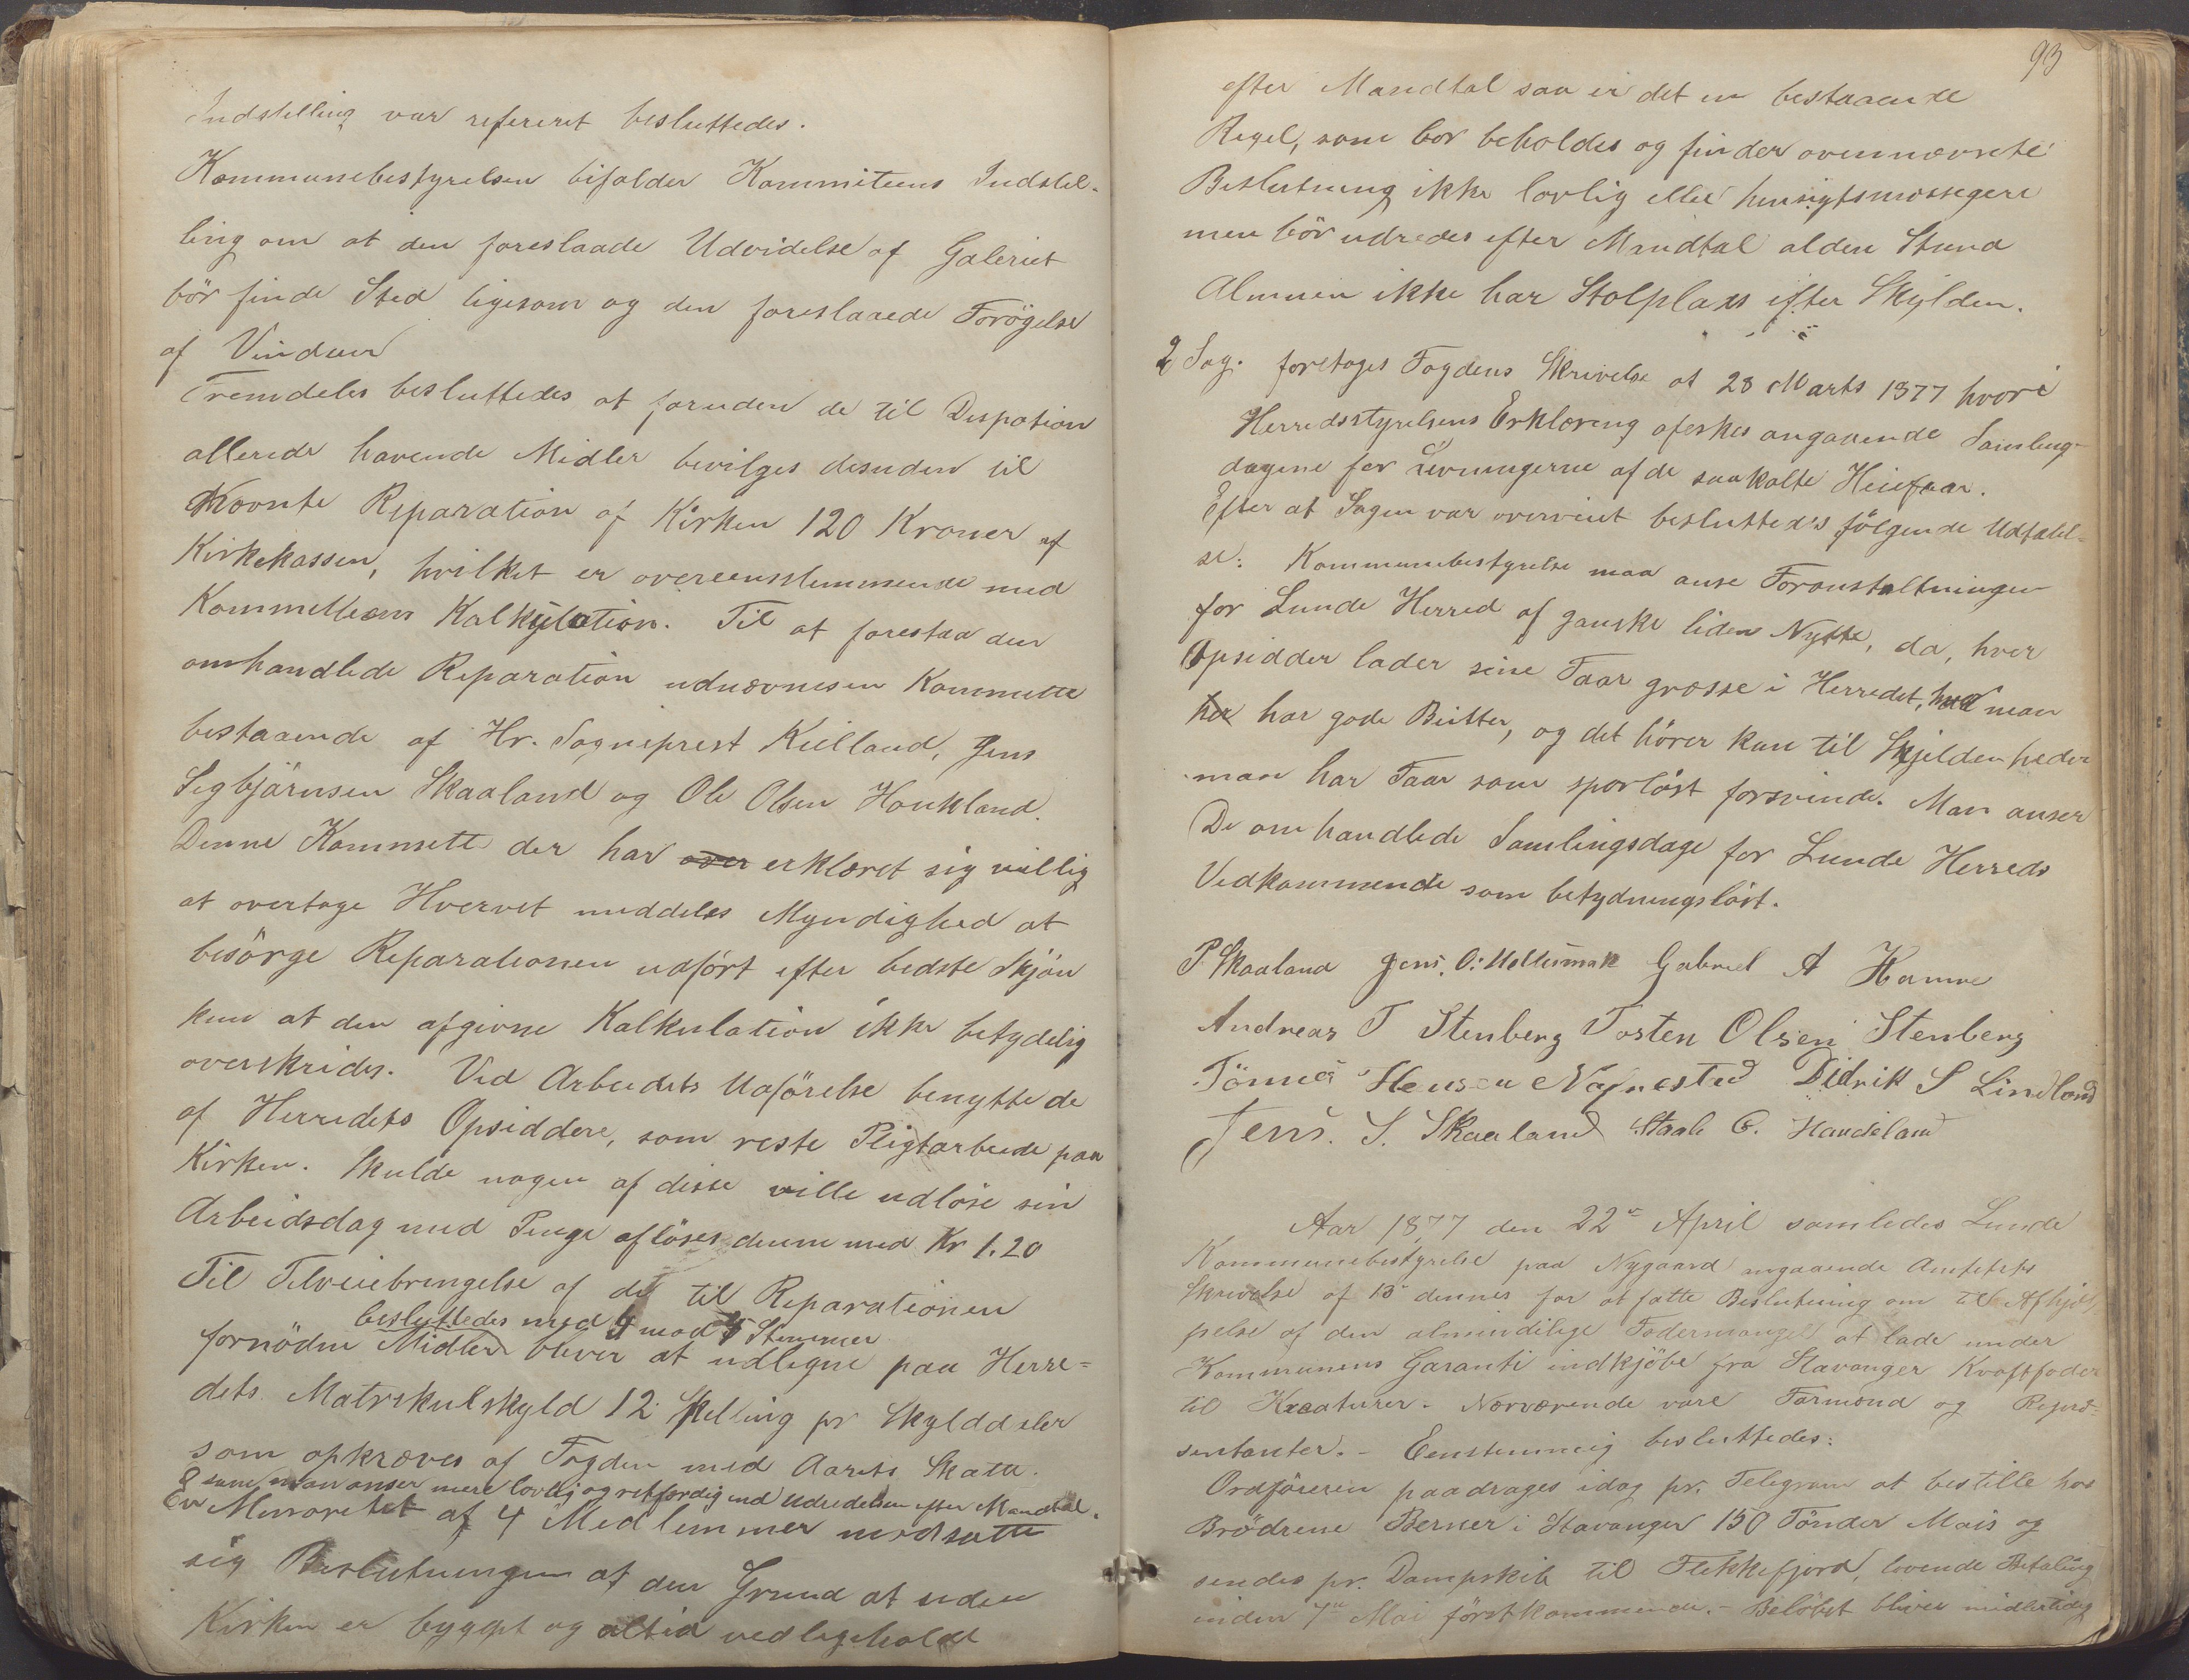 Indstilling var refereret besluttedes.
Kommunebestyrelsen bifalder Kommiteens Indstil-
ling om at den foreslaade Udvidelse af Galeriet
bör finde Sted ligesom og den foreslaaede Forögelse
af Vinduer
Fremdeles besluttedes at foruden de til Dispotion
allerede havende Midler bevilges desuden til
Reparation af Kirken 120 Kroner af
Kirkekassen, hvilket er overeensstemmende med
Kommitteens Kalkylation. Til at forestaa den
omhandlede Reparation udnævnes en Kommitte
bestaaende af Hr. Sogneprest Kielland, Jens
Segbjörnsen Skaaland og Ole Olsen Haukland.
Denne Kommitte der har over erklæret sig villig
at overtage Hvervet meddeles Myndighed at
besörge Reparationen udfört efter bedste Skjön
kun at den afgivne Kalkulation ikke betydelig
overskrides. Ved Arbeidets Udförelse benytte de
af Herredets Opsiddere, som reste Pligtarbeide paa
Kirken. Skulde nogen af disse ville udlöse sin
Arbeidsdag med Penge aflöses denne med Kr 1.20
Til Tilveiebringelse af de til Reparationen
besluttedes med 9 mod 4 Stemmer
fornödne Midler bliver at udlegne paa Herre=
dets Matrikulskyld 12 Skilling pr Skylddaler
som opkræves af Fogden med Aarets Skatte.
som man anser mere lovlig og retfærdig end Udredelsen efter Mandtal.
En Minoritet af 4 Medlemmer modsatte
sig Beslutningen af den Grund at siden
Kirken er bygget og altid vedligeholdt
93
efter Mandtal saa er det en bestaaende
Regel, som bør beholdes og finder ovennævnte
Beslutning ikke lovlig eller hensigtsmæssegere
men bör udredes efter Mandtal alden Stund
Almuen ikke har Stolplass efter Skylden.
2 Sag. foretoges Fogdens Skrivelse af 28 Marts 1877 hvori
Herredsstyrelsens Erklæring æskes angaaende Samling-
dagene for Levningerne af de saakalte Heiefaar.
Efter at Sagen var overveiet besluttedes fölgende Udtalel-
se: Kommunebestyrelse maa anse Foranstaltningen
for Lunde Herred af ganske liden Nytte, da, hver
Opsidder lader sine Faar græsse i Herredet, hvor man
her har gode Beitter, og det hörer kun til Skjeldenheder
man har Faar som sporlöst forsvinde. Man anser
De omhandlede Samlingsdage for Lunde Herreds
Vedkommende som betydningslöst.
P Skaaland Jens. O: Gabriel A Hamre
Andreas T Stenberg Tosten Olsen Stenberg
Tönnes Hensen Nagnestad Didrik S Lindland
Jens. S. Skaaland Staale C. Haudeland
Aar 1877 den 22de April samledes Lunde
Kommunebestyrelse paa Nygaard angaaende Amtets
Skrivelse af 13 dennes for at fatte Beslutning om til Afhjæl-
pelse af den almindelige Fodermangel at lade under
Kommunens Garanti indkjöbe fra Stavanger Kraftfoder
til Kreaturer. Nærværende vare Formænd og Repræ-
sentanter. - Eenstemmig besluttedes:
Ordföreren paadrages idag pr. Telegram at bestille hos
Brödrene Berner i Stavanger 150 Tönder Mais og
sendes pr. Dampskib til Flekkefjord, lovende Betaling
inden 7de Mai förstkommende. - Belöbet bliver midlertidig